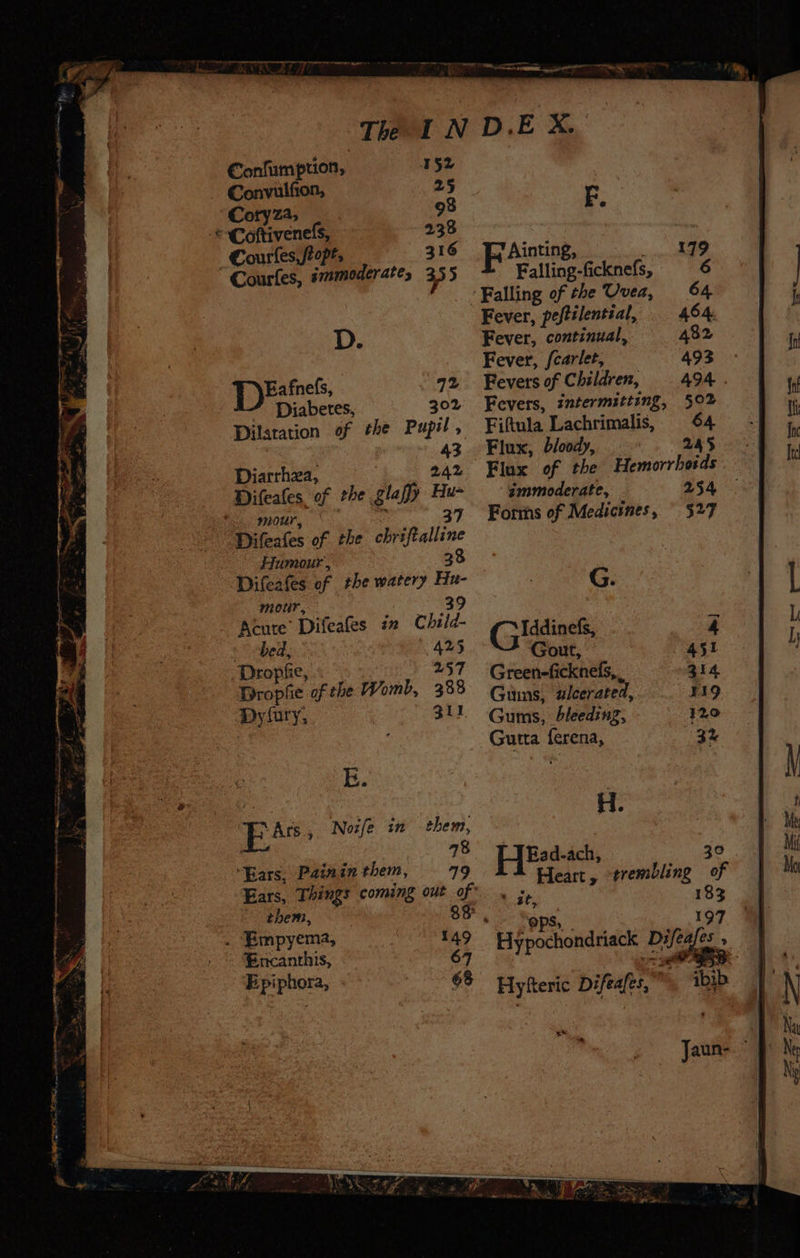 The I N D.E X.
Conſumption, 152
Convulſion, 25
Coryza, 98
Coſtiveneſs, 238
Courſes, ſtopt, 316
Courſes, immoderate, 355
D.
DEafneſs, 72
Diabetes, 302
Dilatation of the Pupil, 43
Diarrhæa, 242
Diſeaſes of the glaſſy Hu-
mour, 37
Diſeaſes of the chriſtalline
Humour, 38
Diſeaſes of the watery Hu-
mour, 39
Acute Diſeaſes in Child-
bed, 425
Dropſie, 257
Dropſie of the Womb, 388
Dyſury, 311
E.
EArs, Noiſe in them,
78
Ears, Pain in them, 79
Ears, Things coming out of
them, 88
Empyema, 149
Encanthis, 67
Epiphora, 68
F.
FAinting, 179
Falling-ſickneſs, 6
Falling of the Uvea, 64
Fever, peſtilential, 464
Fever, continual, 482
Fever, ſcarlet, 493
Fevers of Children, 494
Fevers, intermitting, 502
Fiſtula Lachrimalis, 64
Flux, bloody, 245
Flux of the Hemorrhoids
immoderate, 254
Forms of Medicines, 527
G.
GIddineſs, 4
Gout, 451
Green-ſickneſs, 314
Gums, ulcerated, 119
Gums, bleeding, 120
Gutta ſerena, 32
H.
HEad-ach, 30
Heart, trembling of
it, 183
ops, 197
Hypochondriack Diſeaſes,
Hyſteric Diſeaſes, ibib
Jaun-